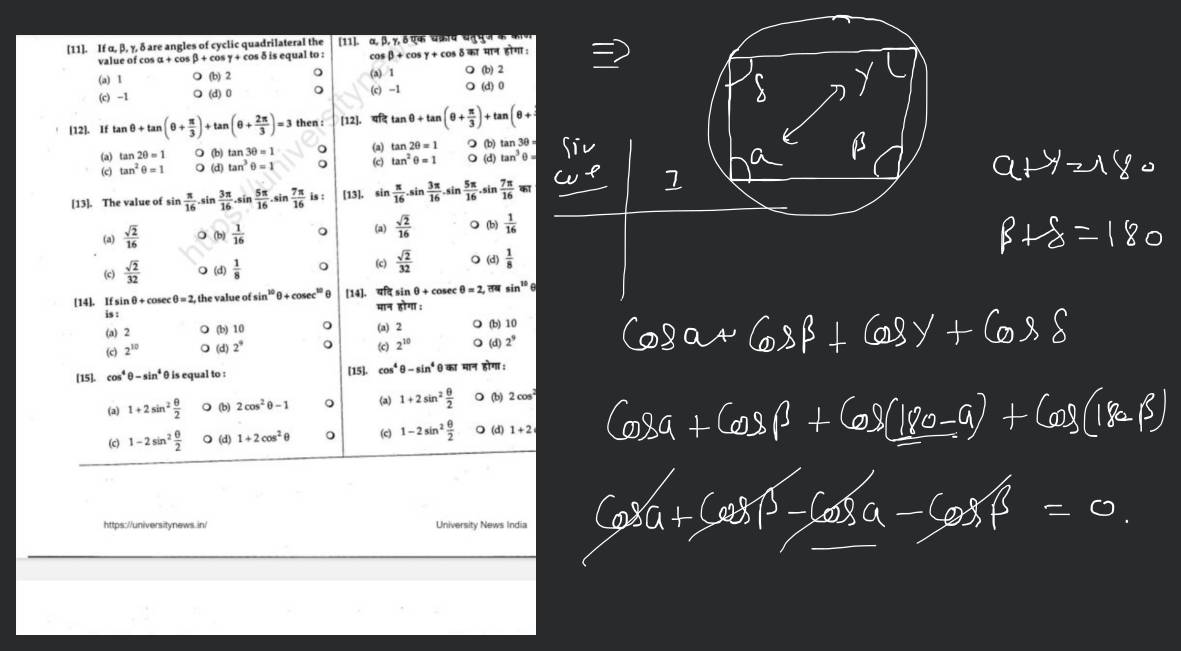 [11]. If α, β, γ, δ are angles of cyclic quadrilateral the
value of cos α + cos β + cos γ + cos δ is equal to :
(a) 1 (b) 2
(c) −1 (d) 0
[12]. If tan θ + tan(θ + π/3) + tan(θ + 2π/3) = 3 then :
(a) tan 2θ = 1 (b) tan 3θ = 1
(c) tan² θ = 1 (d) tan³ θ = 1
[13]. The value of sin π/16 .sin 3π/16 .sin 5π/16 .sin 7π/16 is :
(a) √2/16 (b) 1/16
(c) √2/32 (d) 1/8
[14]. If sin θ + cosec θ = 2, the value of sin¹⁰ θ + cosec¹⁰ θ
is :
(a) 2 (b) 10
(c) 2¹⁰ (d) 2⁹
[15]. cos⁴ θ − sin⁴ θ is equal to :
(a) 1 + 2 sin² θ/2 (b) 2 cos² θ − 1
(c) 1 − 2 sin² θ/2 (d) 1 + 2 cos² θ
[11]. α, β, γ, δ एक चक्रीय चतुर्भुज के कोण
cos β + cos γ + cos δ का मान होगा :
(a) 1 (b) 2
(c) −1 (d) 0
[12]. यदि tan θ + tan(θ + π/3) + tan(θ +
(a) tan 2θ = 1 (b) tan 3θ =
(c) tan² θ = 1 (d) tan³ θ =
[13]. sin π/16 .sin 3π/16 .sin 5π/16 .sin 7π/16 का
(a) √2/16 (b) 1/16
(c) √2/32 (d) 1/8
[14]. यदि sin θ + cosec θ = 2, तब sin¹⁰ θ
मान होगा :
(a) 2 (b) 10
(c) 2¹⁰ (d) 2⁹
[15]. cos⁴ θ − sin⁴ θ का मान होगा :
(a) 1 + 2 sin² θ/2 (b) 2 cos²
(c) 1 − 2 sin² θ/2 (d) 1 + 2
https://universitynews.in/ University News India
https://universityne
⇒
δ γ
α β
α + γ = 180
β + δ = 180
Cosα + Cosβ + Cosγ + Cosδ
Cosα + Cosβ + Cos(180−α) + Cos(180−β)
Cosα + Cosβ − Cosα − Cosβ = 0.